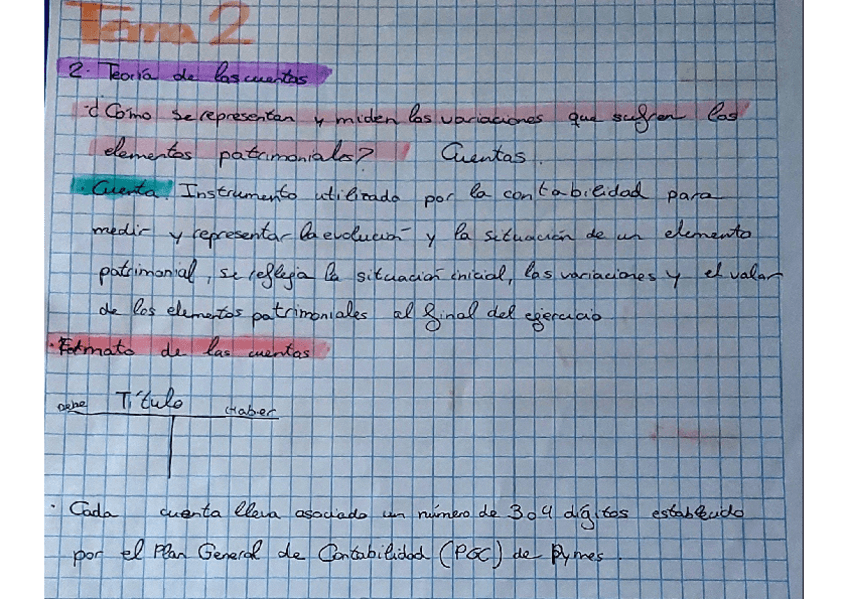 Tema 2
2. Teoría de las cuentas
¿Cómo se representan y miden las variaciones que sufren los
elementos patrimoniales? Cuentas.
· Cuenta: Instrumento utilizado por la contabilidad para
medir y representar la evolución y la situación de un elemento
patrimonial, se refleja la situación inicial, las variaciones y el valor
de los elementos patrimoniales al final del ejercicio
· Formato de las cuentas
Debe Título Haber
· Cada cuenta lleva asociado un número de 3 o 4 dígitos establecido
por el Plan General de Contabilidad (PGC) de Pymes.